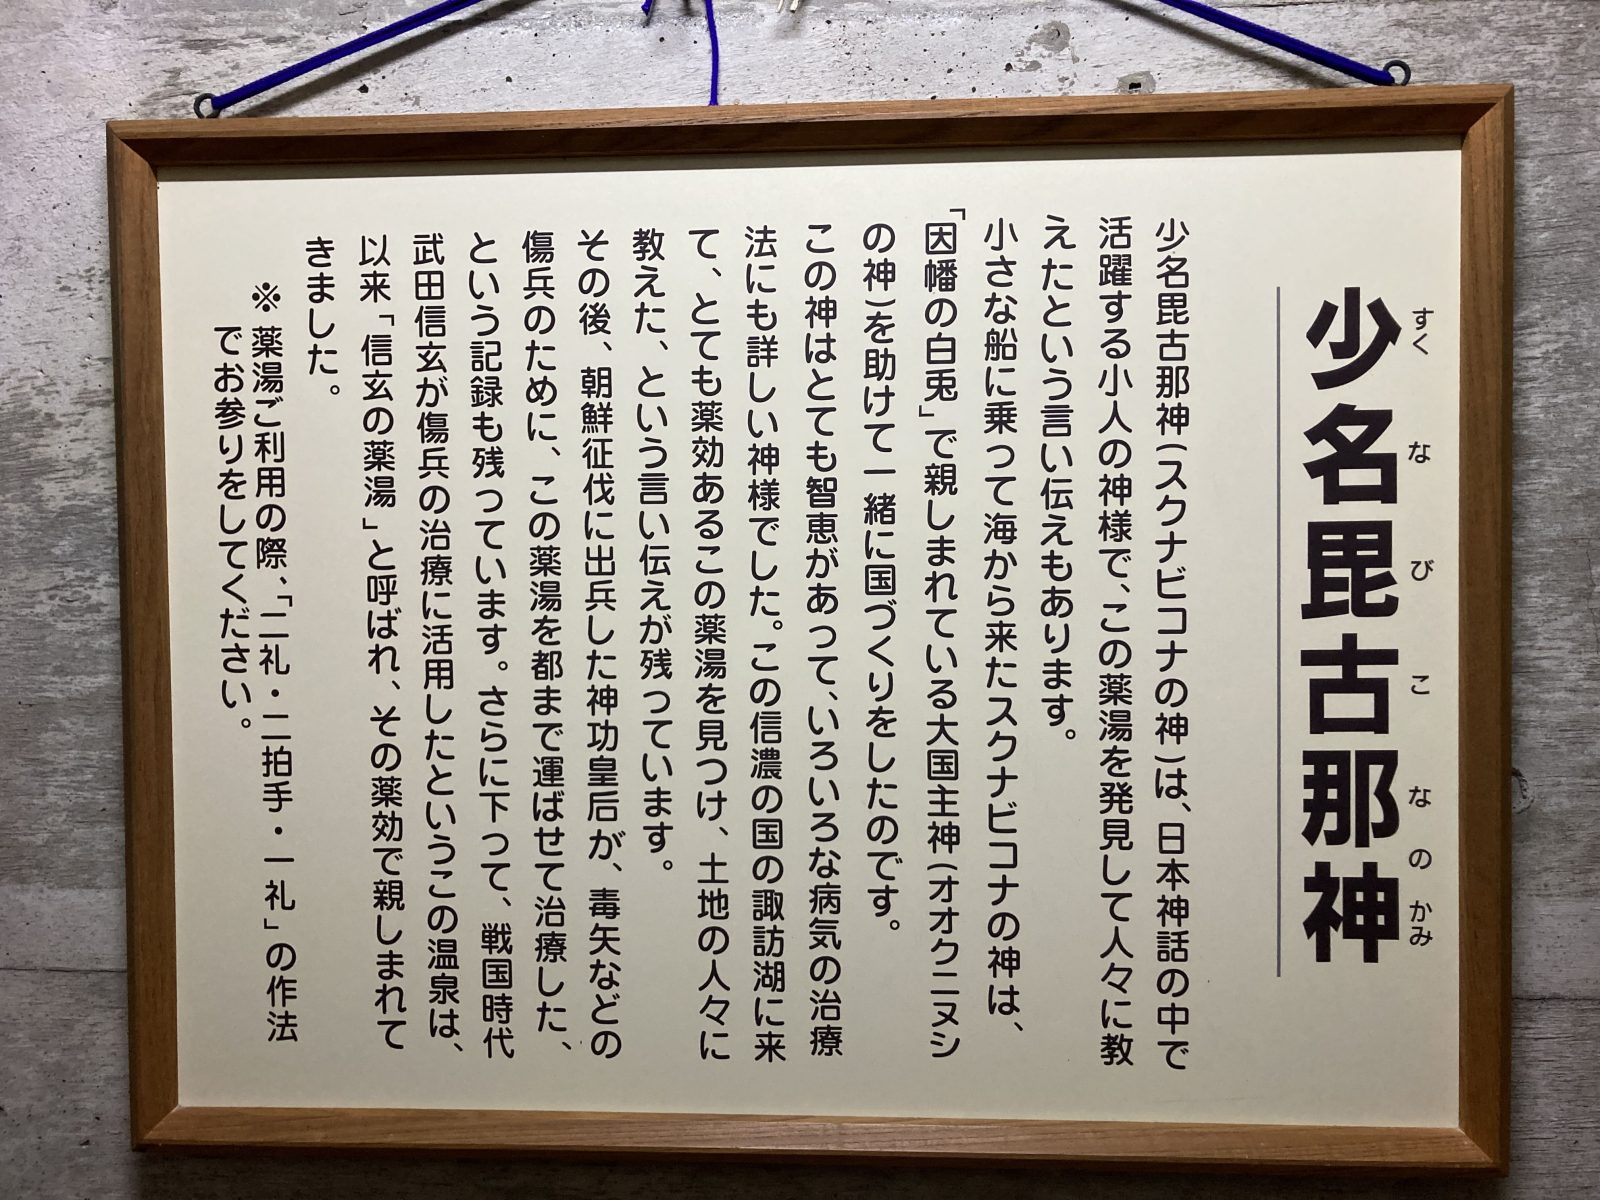 少名毘古那神
すくなびこなのかみ
少名毘古那神(スクナビコナの神)は、日本神話の中で
活躍する小人の神様で、この薬湯を発見して人々に教
えたという言い伝えもあります。
小さな船に乗って海から来たスクナビコナの神は、
「因幡の白兎」で親しまれている大国主神(オオクニヌシ
の神)を助けて一緒に国づくりをしたのです。
この神はとても智恵があって、いろいろな病気の治療
法にも詳しい神様でした。この信濃の国の諏訪湖に来
て、とても薬効あるこの薬湯を見つけ、土地の人々に
教えた、という言い伝えが残っています。
その後、朝鮮征伐に出兵した神功皇后が、毒矢などの
傷兵のために、この薬湯を都まで運ばせて治療した、
という記録も残っています。さらに下って、戦国時代
武田信玄が傷兵の治療に活用したというこの温泉は、
以来「信玄の薬湯」と呼ばれ、その薬効で親しまれて
きました。
※薬湯ご利用の際、「二礼・二拍手・一礼」の作法
でお参りをしてください。